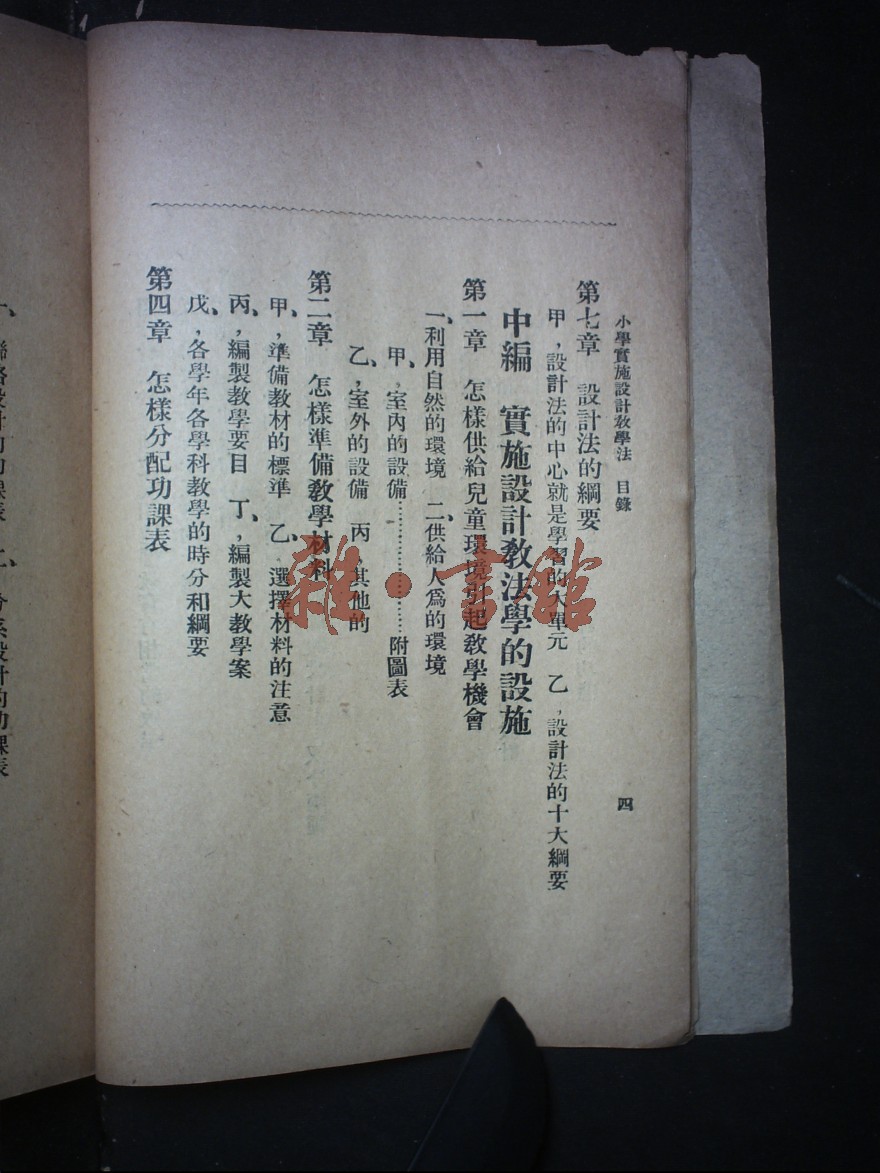 小學實施設計敎學法　目錄
四
第七章　設計法的綱要
甲，設計法的中心就是學習的大單元　乙，設計法的十大綱要
中編　實施設計敎法學的設施
第一章　怎樣供給兒童環境引起敎學機會
一、利用自然的環境　二、供給人爲的環境
甲、室內的設備……………………附圖表
乙、室外的設備　丙、其他的
第二章　怎樣準備敎學材料
甲、準備教材的標準　乙、選擇材料的注意
丙、編製教學要目　丁、編製大教學案
戊、各學年各學科教學的時分和綱要
第四章　怎樣分配功課表
雜·書館